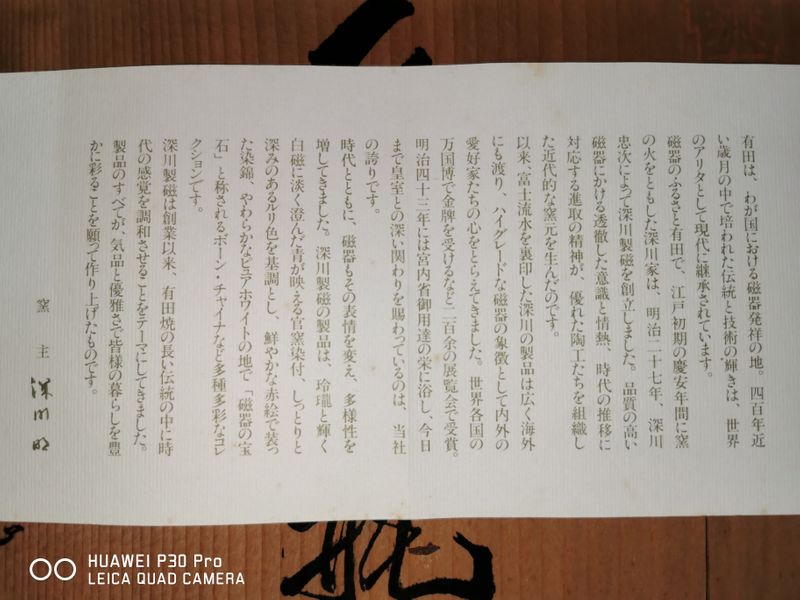 有田は、わが国における磁器発祥の地。四百年近
い歳月の中で培われた伝統と技術の輝きは、世界
のアリタとして現代に継承されています。
磁器のふるさと有田で、江戸初期の慶安年間に窯
の火をともした深川家は、明治二十七年、深川
忠次によって深川製磁を創立しました。品質の高い
磁器にかける透徹した意識と情熱、時代の推移に
対応する進取の精神が、優れた陶工たちを組織し
た近代的な窯元を生んだのです。
以来、富士流水を裏印した深川の製品は広く海外
にも渡り、ハイグレードな磁器の象徴として内外の
愛好家たちの心をとらえてきました。世界各国の
万国博で金牌を受けるなど二百余の展覧会で受賞。
明治四十三年には宮内省御用達の栄に浴し、今日
まで皇室との深い関わりを賜わっているのは、当社
の誇りです。
時代とともに、磁器もその表情を変え、多様性を
増してきました。深川製磁の製品は、玲瓏と輝く
白磁に淡く澄んだ青が映える官窯染付、しっとりと
深みのあるルリ色を基調とし、鮮やかな赤絵で装っ
た染錦、やわらかなピュアホワイトの地で「磁器の宝
石」と称されるボーン・チャイナなど多種多彩なコレ
クションです。
深川製磁は創業以来、有田焼の長い伝統の中に時
代の感覚を調和させることをテーマにしてきました。
製品のすべてが、気品と優雅さで皆様の暮らしを豊
かに彩ることを願って作り上げたものです。
窯主 深川明
HUAWEI P30 Pro
LEICA QUAD CAMERA